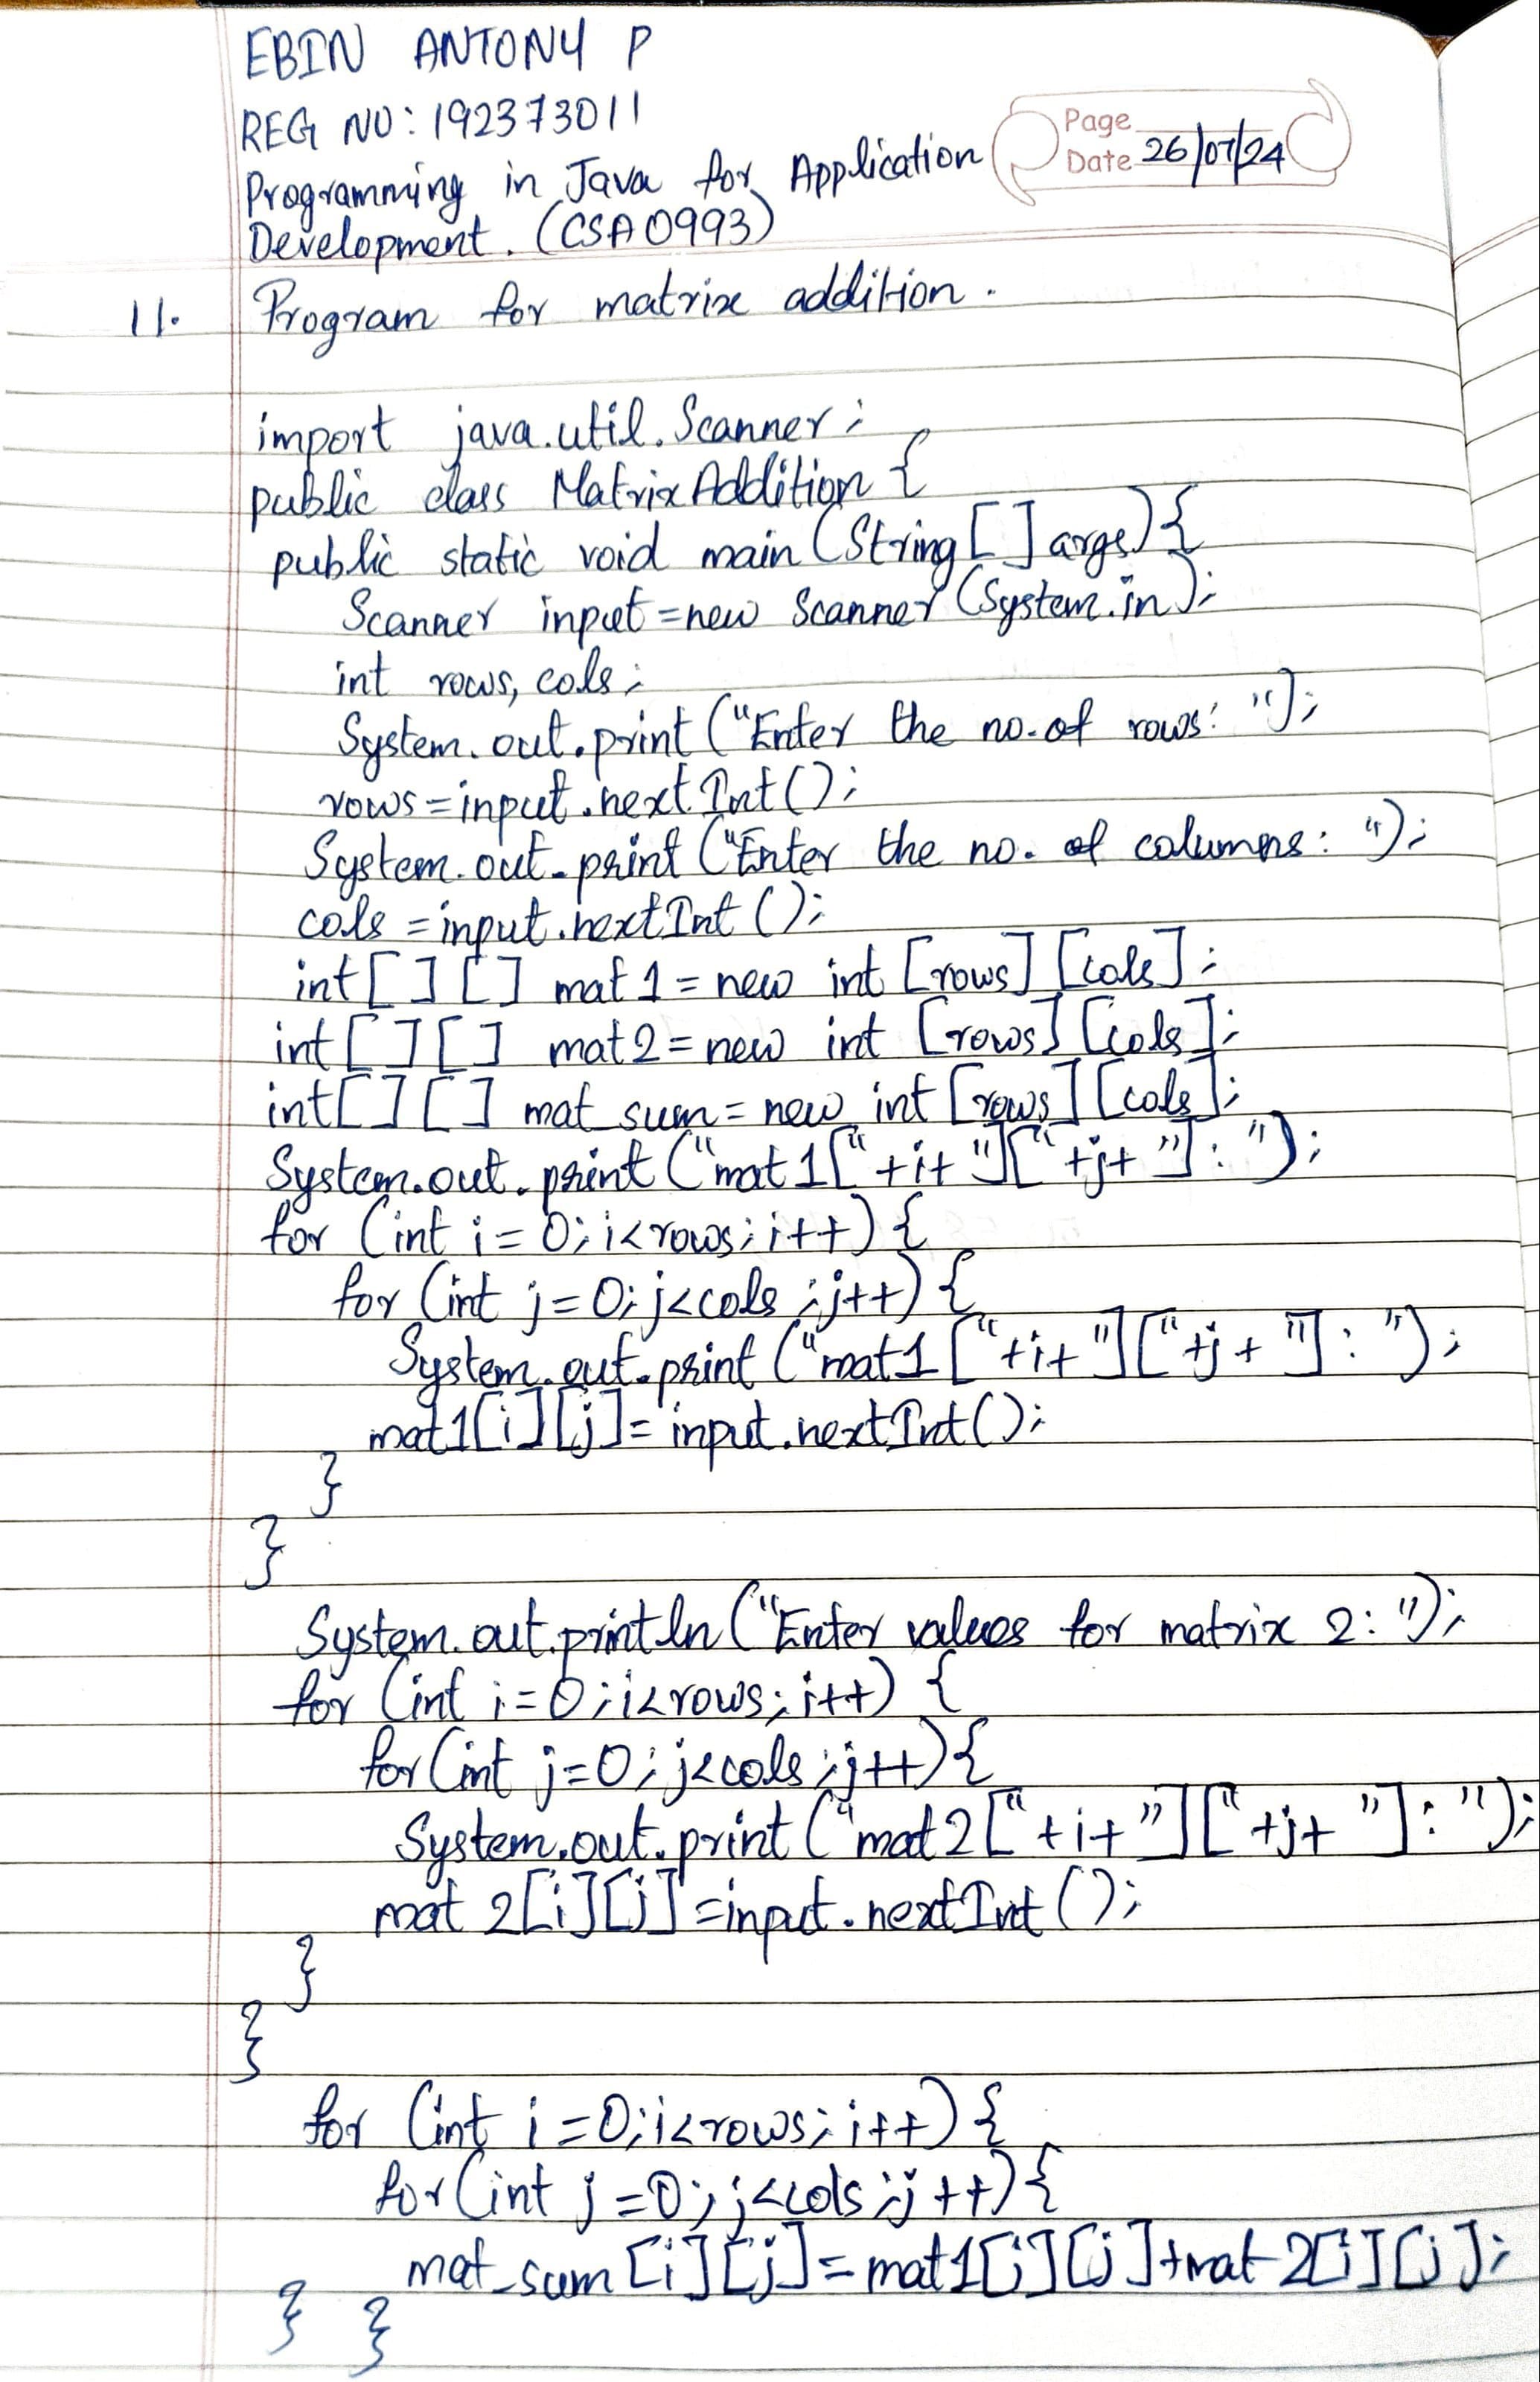 EBIN ANTONY P
REG NO: 192373011
Page
Date 26/07/24
Programming in Java for Application
Development. (CSA0993)
11. Program for matrix addition.
import java.util.Scanner;
public class MatrixAddition {
public static void main (String [ ] args) {
Scanner input = new Scanner (System.in);
int rows, cols;
System.out.print ("Enter the no. of rows: ");
rows = input.nextInt ();
System.out.print ("Enter the no. of columns: ");
cols = input.nextInt ();
int [ ] [ ] mat1 = new int [rows] [cols];
int [ ] [ ] mat2 = new int [rows] [cols];
int [ ] [ ] mat_sum = new int [rows] [cols];
System.out.print ("mat1["+i+"]["+j+"]: ");
for (int i = 0; i<rows; i++) {
for (int j = 0; j<cols; j++) {
System.out.print ("mat1["+i+"]["+j+"]: ");
mat1[i][j] = input.nextInt ();
}
}
System.out.println ("Enter values for matrix 2: ");
for (int i=0; i<rows; i++) {
for (int j=0; j<cols; j++) {
System.out.print ("mat2["+i+"]["+j+"]: ");
mat2[i][j] = input.nextInt ();
}
}
for (int i=0; i<rows; i++) {
for (int j=0; j<cols; j++) {
mat_sum [i][j] = mat1[i][j] + mat2[i][j];
} }